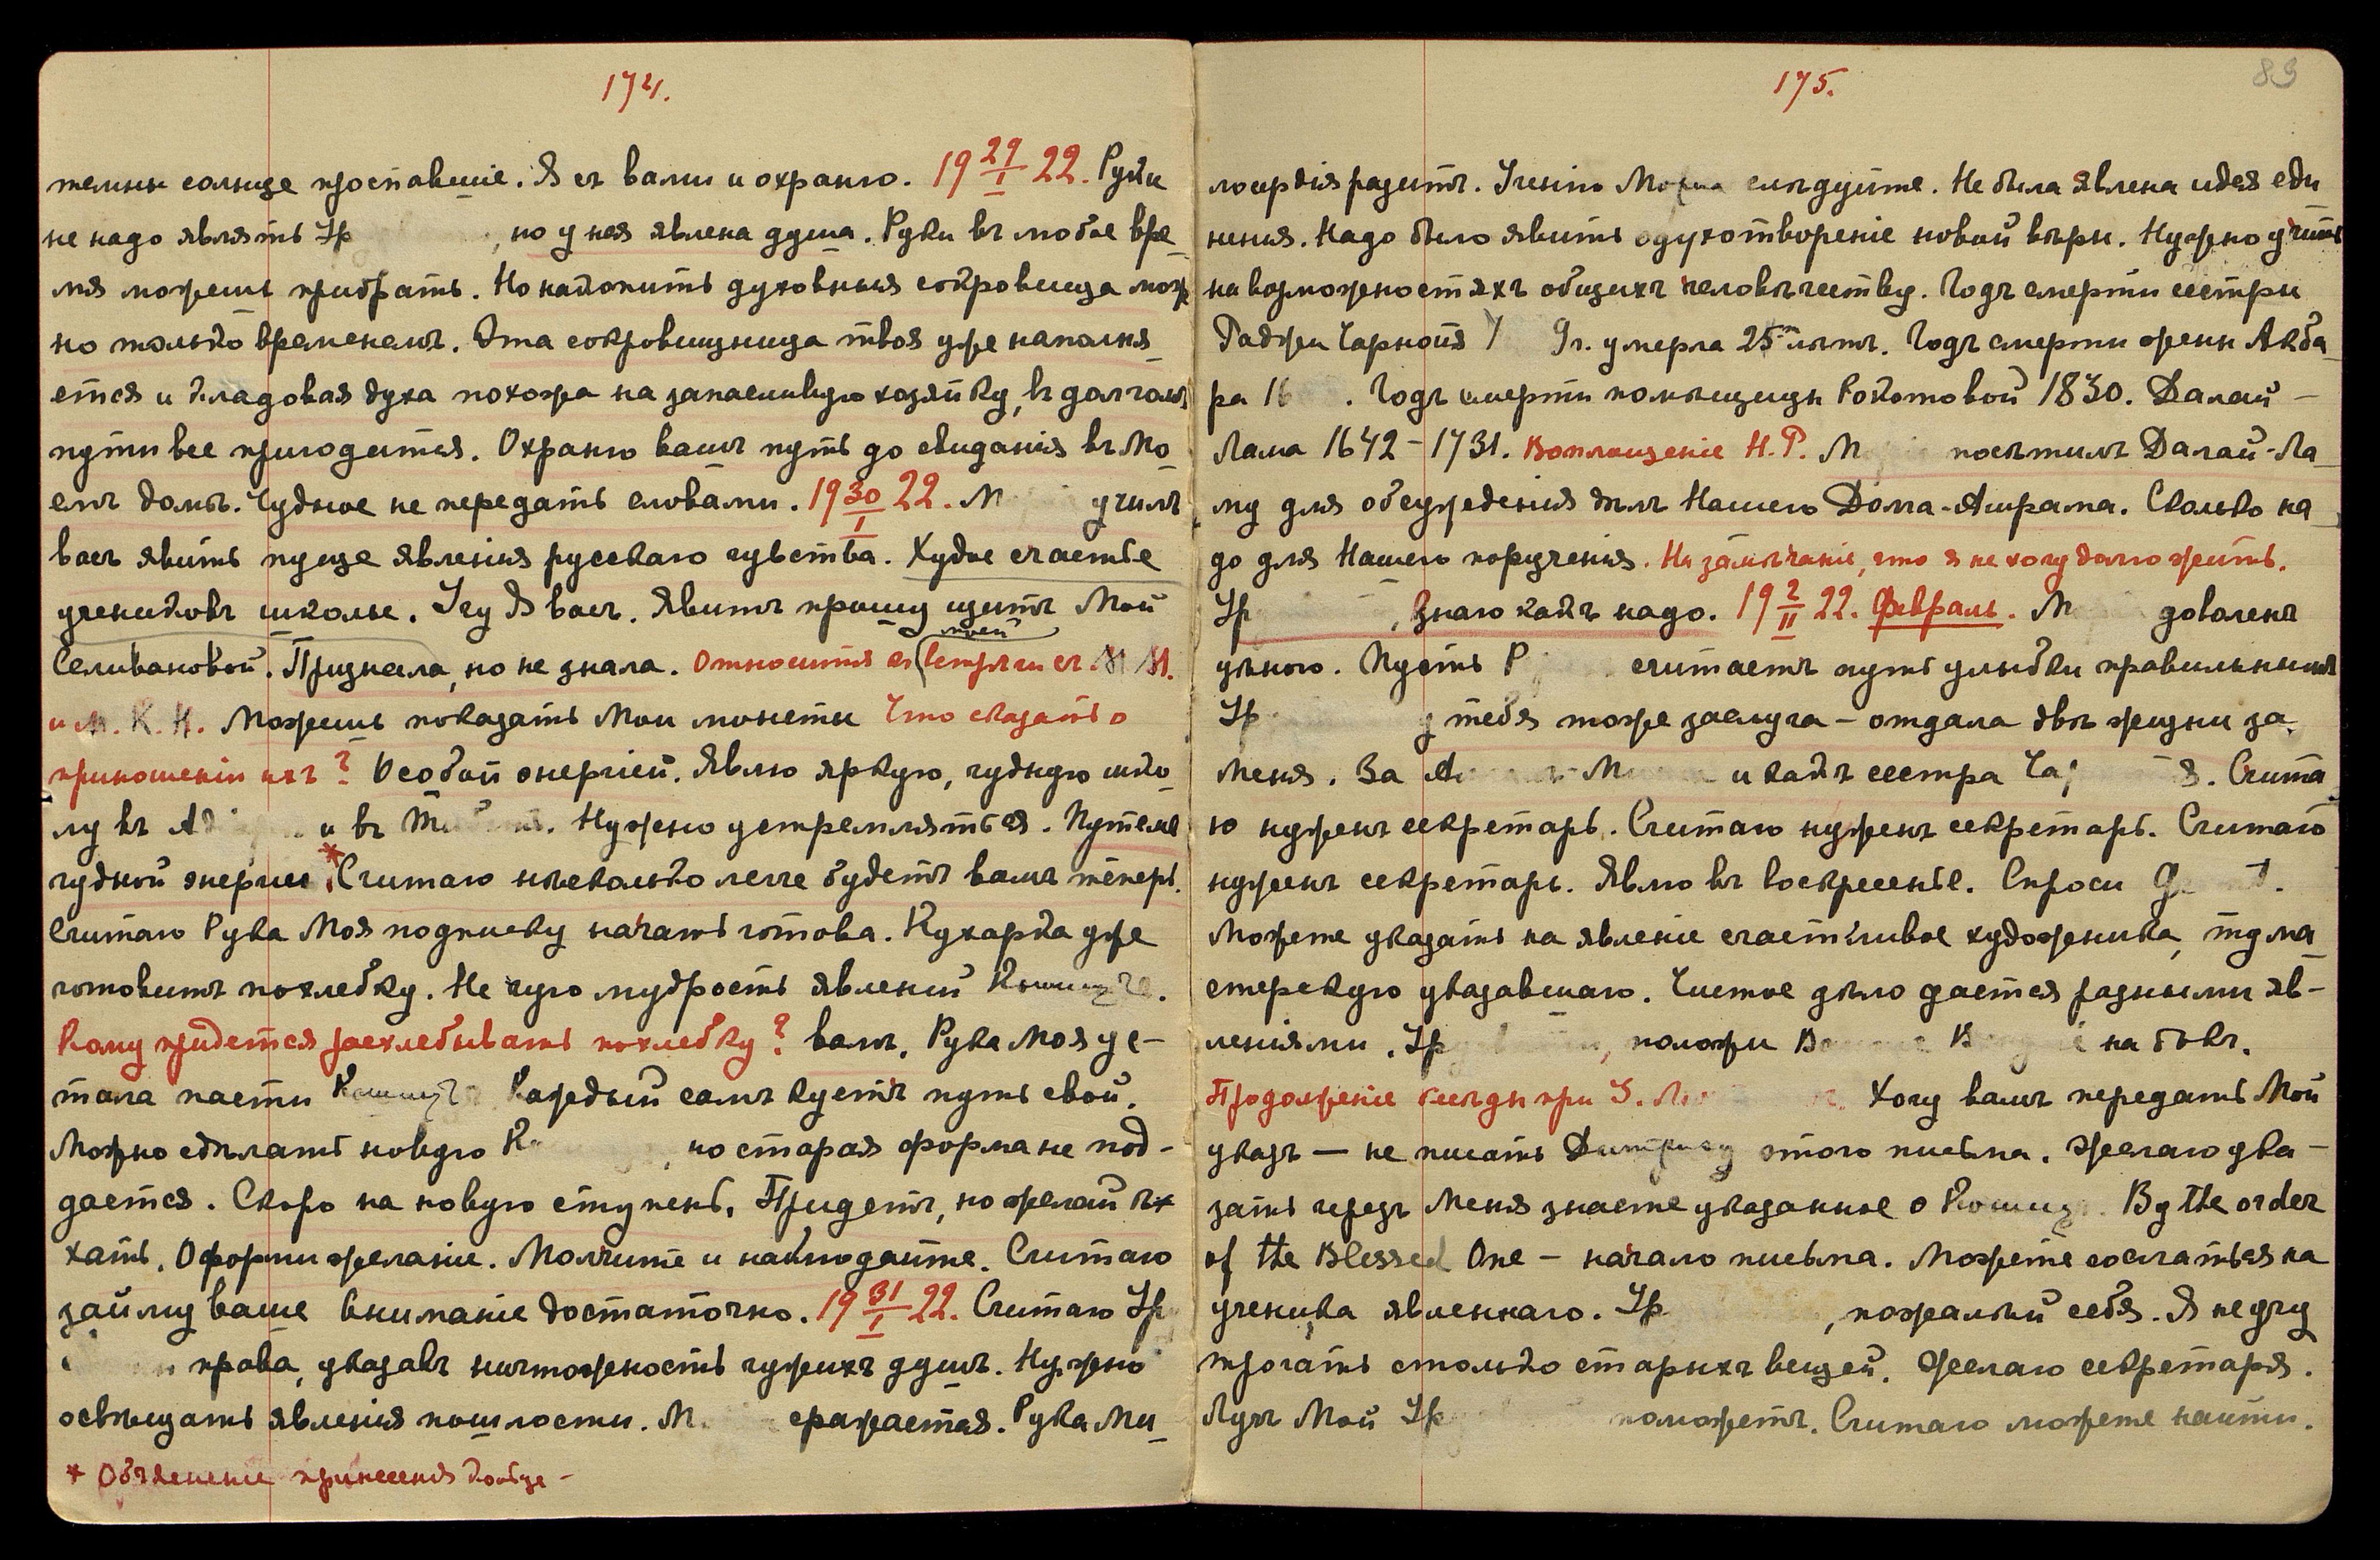 174.
темны солнце проспавшіе. Я съ вами и охраню. 19 29/I 22. Руки
не надо являть Ур , но у нея явлена душа. Руки въ любое вре-
мя можешь прибрать. Но накопить духовныя сокровища мож
но только временемъ. Эта сокровищница твоя уже наполня-
ется и кладовая духа похожа на запасливую хозяйку, въ долгомъ
пути все пригодится. Охраню вашъ путь до свиданія въ Мо-
емъ домѣ. Чудное не передать словами. 19 30/I 22. М училъ
васъ явить пуще явленія русскаго чувства. Худое счастье
учениковъ школы. Учу Я васъ. Явитъ прошу щитъ Мой
Селивановой. Признала, но не знала. Относится къ моей встрѣчи съ М М.
и М. К. Н. Можешь показать Мои монеты Что сказать о
приношеніи ихъ? Особой энергіей. Явлю яркую, чудную шко-
лу въ Ад и въ Ти. Нужно устремляться. Путемъ
чудной энергіи.* Считаю нѣсколько легче будетъ вамъ теперь.
Считаю Рука Моя подписку начать готова. Кухарка уже
готовитъ похлебку. Не чую мудрость явленій
Кому придется расхлебывать похлебку? Вамъ. Рука Моя ус-
тала пасти Каждый самъ куетъ путь свой.
Можно сдѣлать новую , но старая форма не под-
дается. Скоро на новую ступень. Придетъ, но желай ѣ
хать. Оформи желаніе. Молчите и наблюдайте. Считаю
займу ваше вниманіе достаточно. 19 31/I 22. Считаю Ур
права, указавъ ничтожность чужихъ душъ. Нужно
освѣщать явленія пошлости. М сражается. Рука Ми-
* Объясненіе принесенія
175.
89
лосердія разитъ. Ученію слѣдуйте. Не была явлена идея еди
ненія. Надо было явить одухотвореніе новой вѣры. Нужно учить
на возможностяхъ общихъ человѣчеству. Годъ смерти сестры
Раджи Чарноія 9г. умерла 25 лѣтъ. Годъ смерти жены Акба-
ра 16 . Годъ смерти помѣщицы Рокотовой 1830. Далай-
Лама 1642-1731. Воплощеніе Н.Р. М посѣтилъ Далай-Ла-
му для обсужденія дѣлъ Нашего Дома-Ашрама. Сколько на-
до для Нашего порученія. На замѣчаніе, что я не хочу долго жить.
Ур , Знаю какъ надо. 19 2/II 22. Февраль. М доволенъ
Пусть Р считаетъ путь улыбки правильнымъ
Ур у тебя тоже заслуга - отдала двѣ жизни за
Меня. За и какъ сестра Ча я. Счита
ю нуженъ секретарь. Считаю нуженъ секретарь. Считаю
нуженъ секретарь. Явлю въ воскресенье. Спроси
Можете указать на явленіе счастливое художника,
указавшаго. Чистое дѣло дается разными яв-
леніями. Ур , положи на бокъ.
Продолженіе бесѣды при Хочу вамъ передать Мой
указъ — не писать этого письма. Желаю ука-
зать черезъ Меня знаете указанное о By the order
of the Blessed One - начало письма. Можете сослаться на
ученика явленнаго. Ур , пожалѣй себя. Я не учу
трогать столько старыхъ вещей. Желаю секретаря.
Лучъ Мой Ур поможетъ. Считаю можете найти.